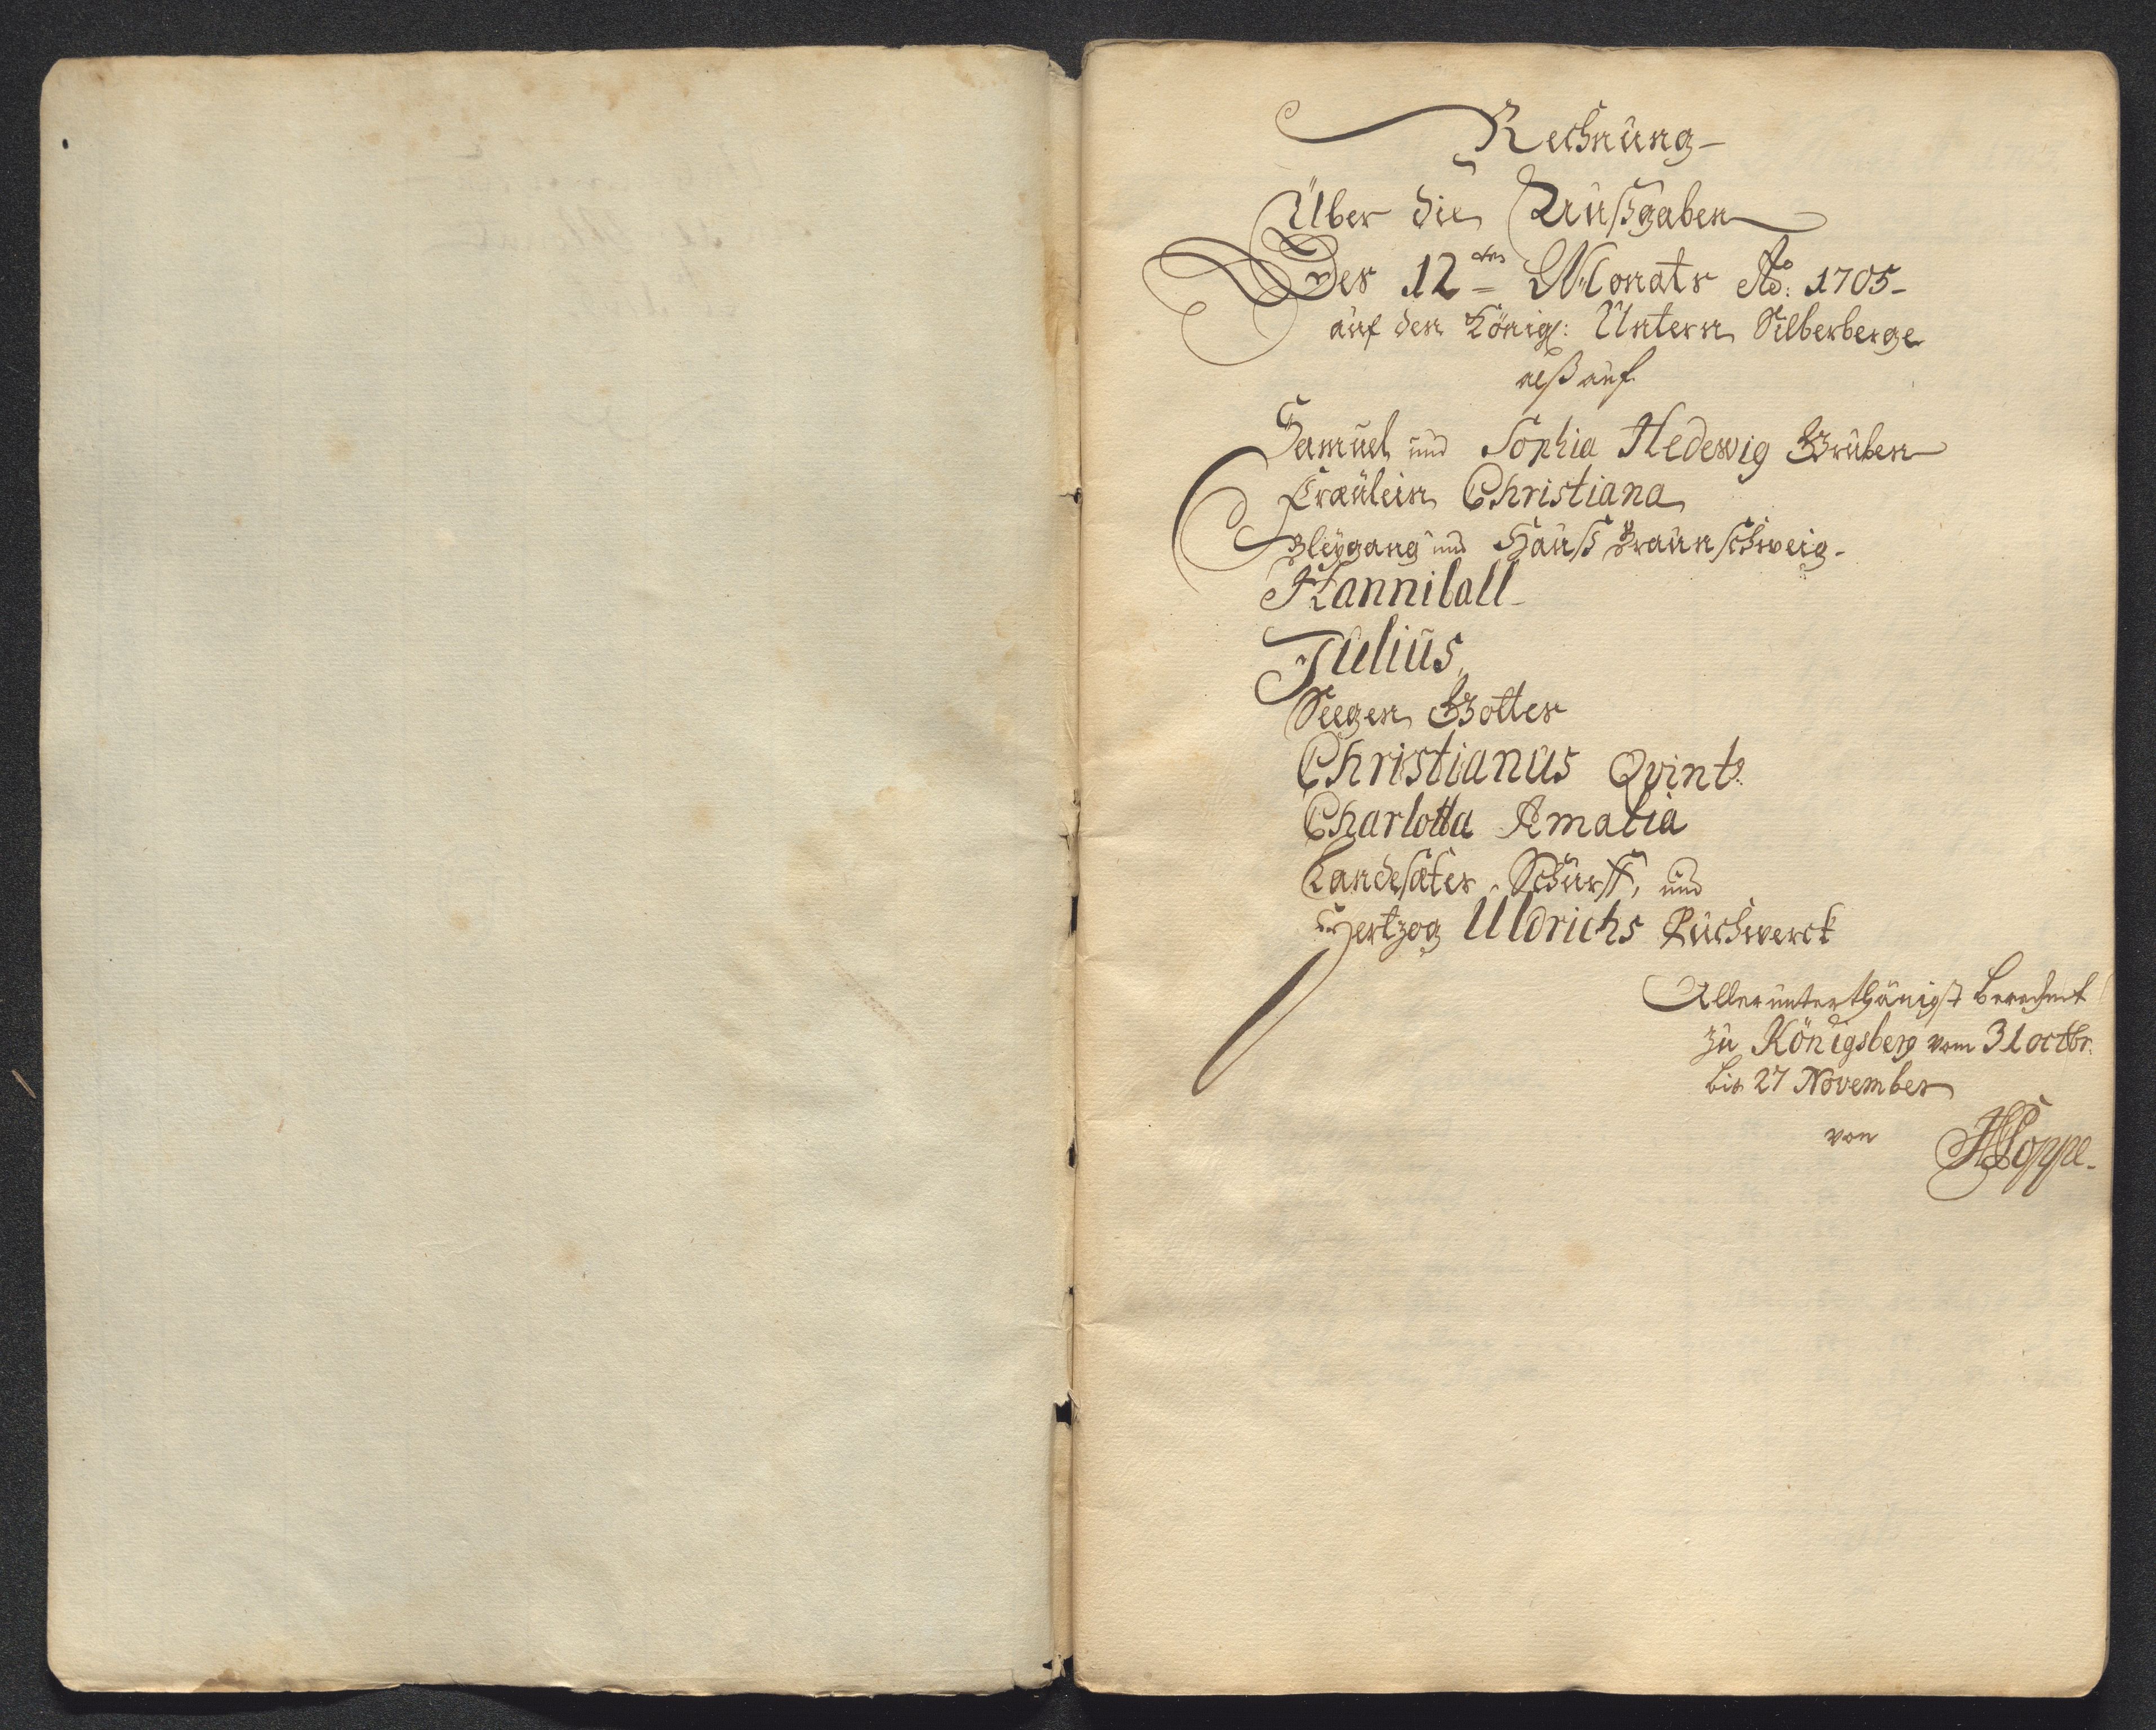 Rechnung
Über die Außgaben
Des 12ten Monats Ao: 1705
auf den König: Untern Silberberge
alß auf
Samuel und Sophia Hedewig Gruben
Fräulein Christiana
Bleygang und Hauß Braunschweig
Hanniball
Julius
Seegen Gottes
Christianus Qvint:
Charlotta Amalia
Landesäter Schurff, und
Hertzog Uldrichs Puchwerck
Allerunterthänigst berechnet
zu Königsberg vom 31 octbr.
bis 27 November
von Poppe